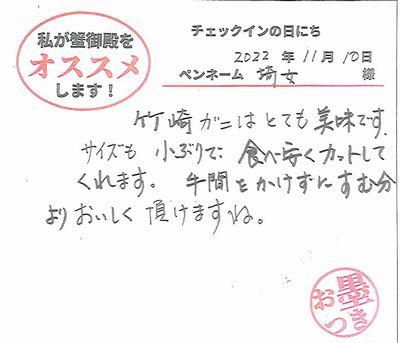 私が蟹御殿を
オススメ
します！
チェックインの日にち
2022 年 11 月 10 日
ペンネーム 埼女 様
竹崎ガニはとても美味です
サイズも 小ぶりで 食べ安くカットして
くれます。 手間をかけずにすむ分
よりおいしく頂けますね。
お墨つき